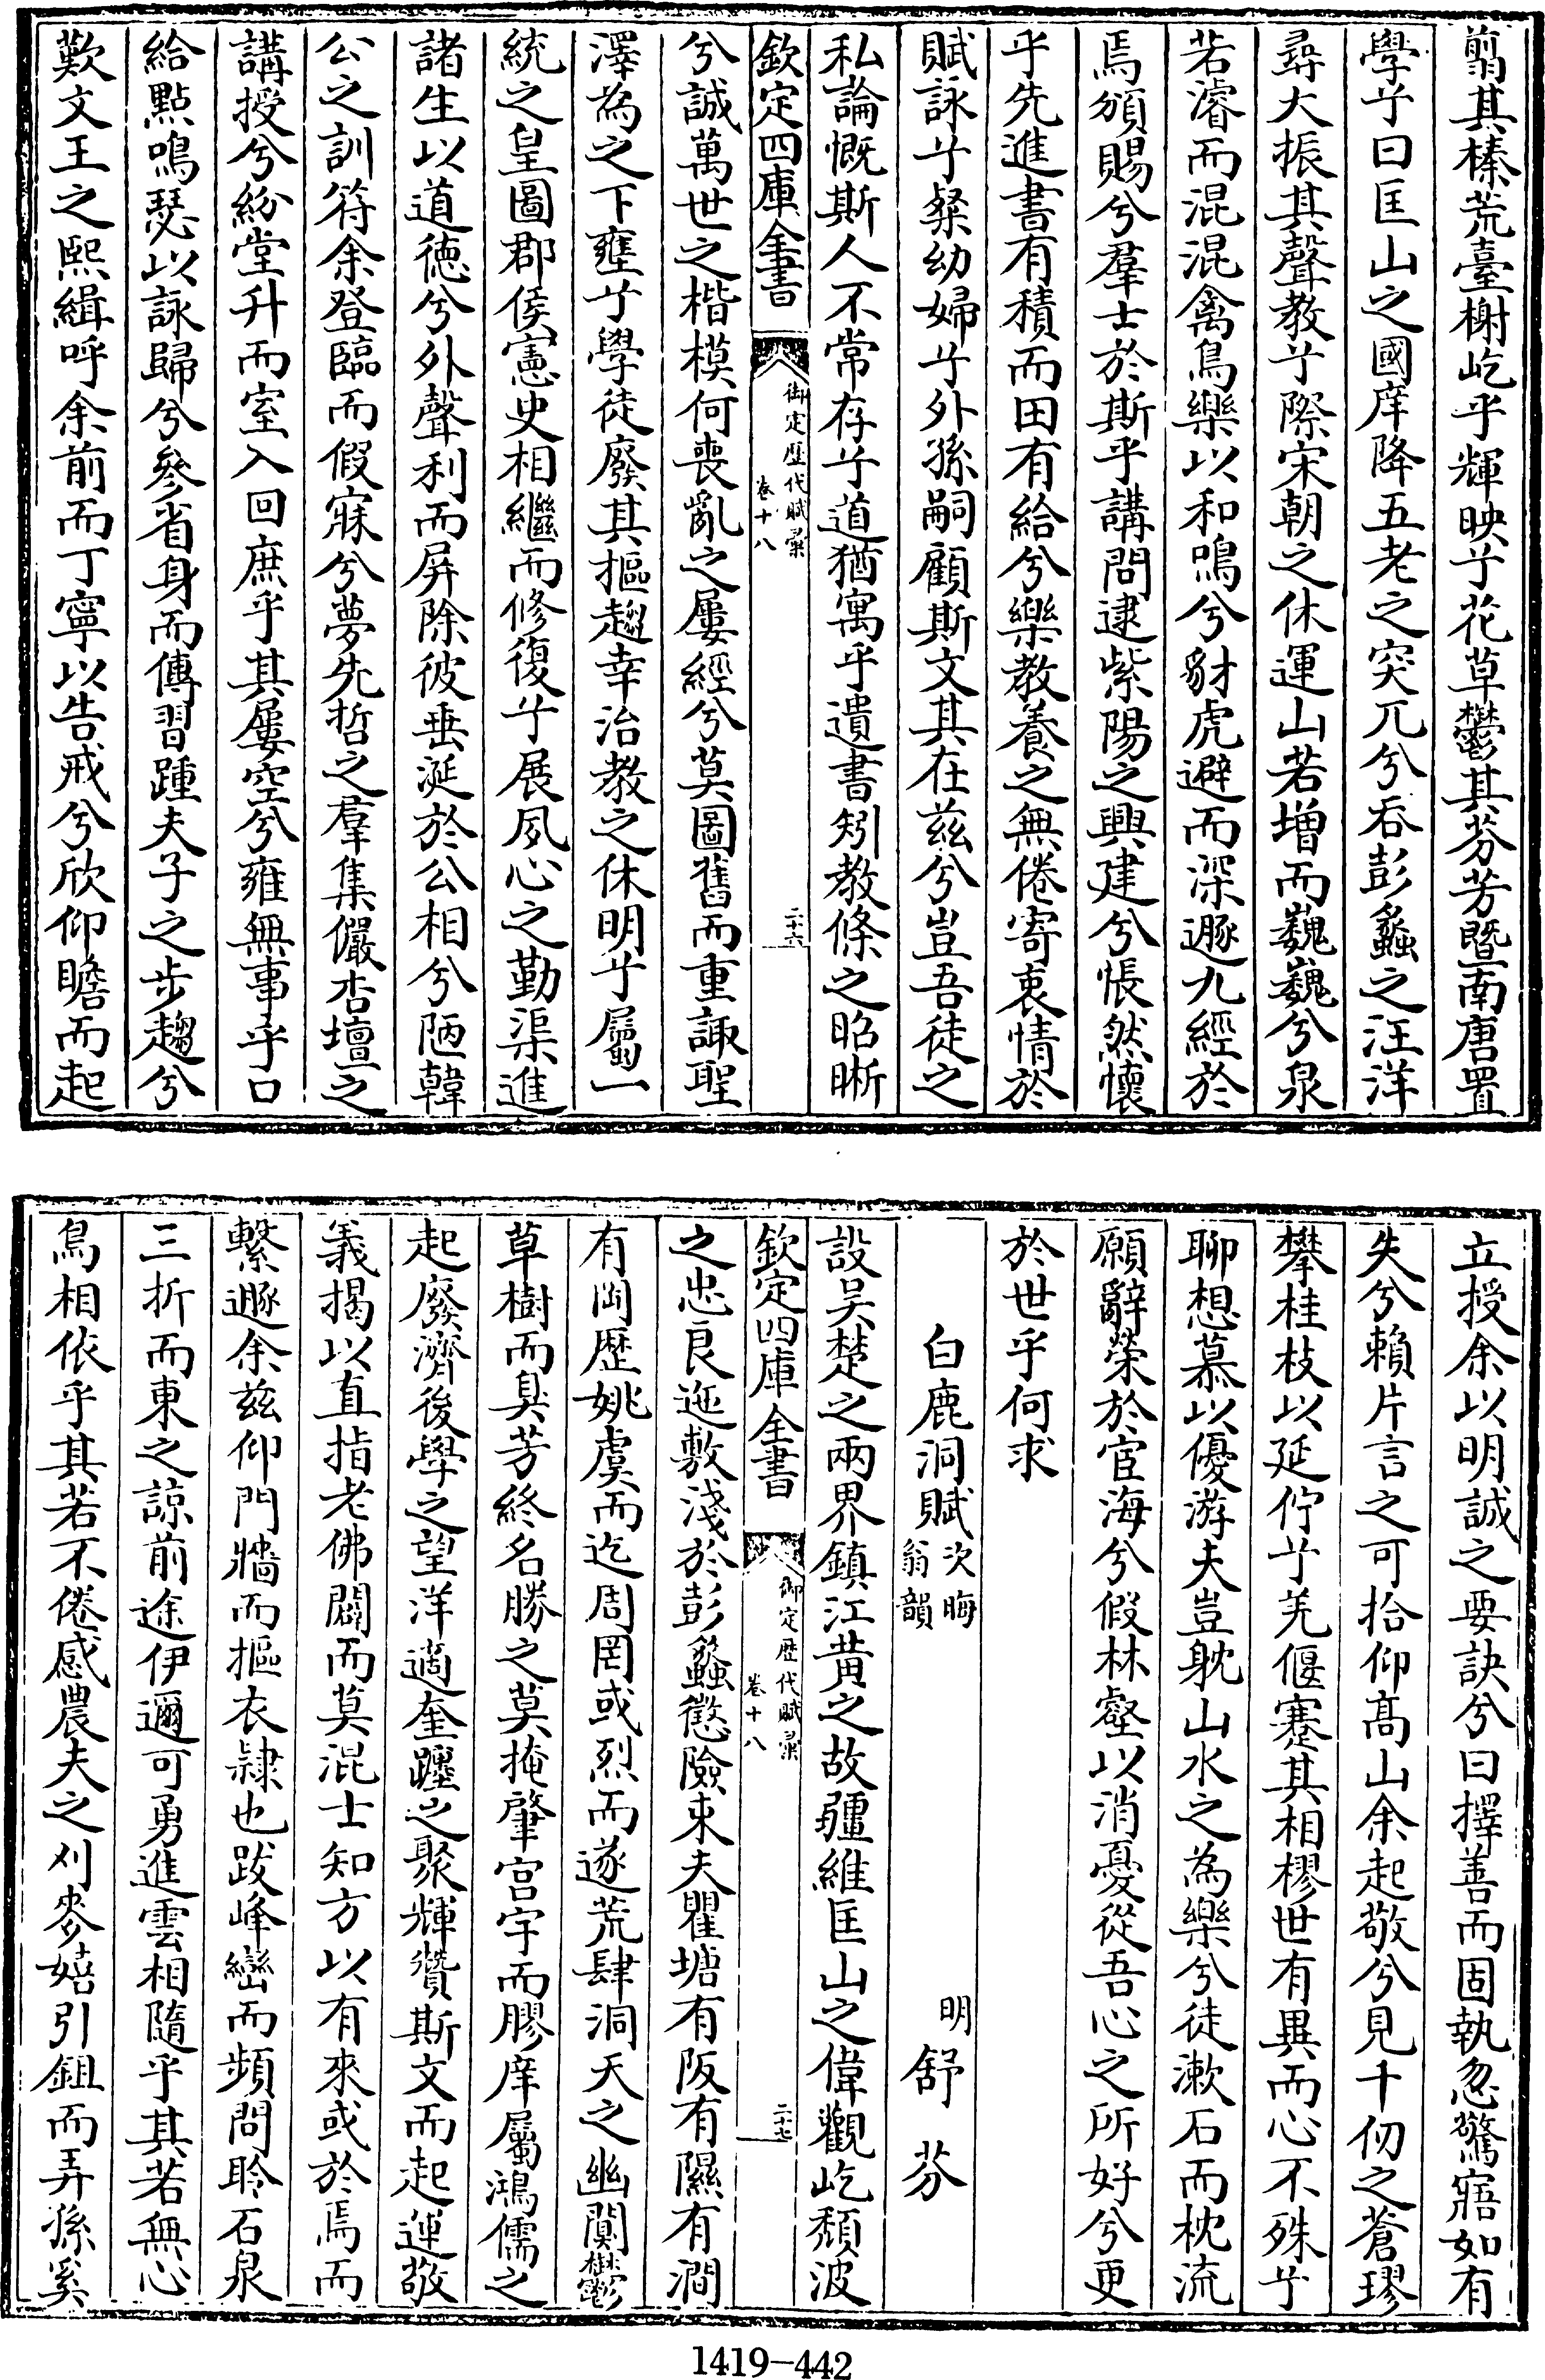 翦其榛荒臺榭屹乎輝映兮花草鬱其芬芳曁南唐置
學兮曰匡山之國庠降五老之突兀兮吞彭蠡之汪洋
尋大振其聲教兮際宋朝之休運山若增而巍巍兮泉
若濬而混混禽鳥樂以和鳴兮豺虎避而深遯九經於
焉頒賜兮羣士於斯乎講問逮紫陽之興建兮悵然懷
乎先進書有積而田有給兮樂教養之無倦寄衷情於
賦詠兮粲幼婦兮外孫嗣顧斯文其在兹兮豈吾徒之
私論慨斯人不常存兮道猶寓乎遺書矧教條之昭晰
欽定四庫全書 御定歷代賦彙 卷十八 二十六
兮誠萬世之楷模何喪亂之屢經兮莫圖舊而重諏聖
澤為之下壅兮學徒廢其摳趨幸治教之休明兮屬一
統之皇圖郡侯憲史相繼而修復兮展夙心之勤渠進
諸生以道德兮外聲利而屏除彼垂涎於公相兮陋韓
公之訓符余登臨而假寐兮夢先哲之羣集儼杏壇之
講授兮紛堂升而室入回庶乎其屢空兮雍無事乎口
給點鳴瑟以詠歸兮參省身而傳習踵夫子之步趨兮
歎文王之熙緝呼余前而丁寧以告戒兮欣仰瞻而起
立授余以明誠之要訣兮曰擇善而固執忽驚寤如有
失兮賴片言之可拾仰髙山余起敬兮見千仞之蒼璆
攀桂枝以延佇兮羌偃蹇其相樛世有異而心不殊兮
聊想慕以優游夫豈躭山水之為樂兮徒漱石而枕流
願辭榮於宦海兮假林壑以消憂從吾心之所好兮更
於世乎何求
白鹿洞賦 次晦翁韻 明 舒芬
設吴楚之兩界鎮江黄之故疆維匡山之偉觀屹頹波
欽定四庫全書 御定歷代賦彙 卷十八 二十七
之忠良迤敷淺於彭蠡懲險束夫瞿塘有阪有隰有澗
有岡歷姚虞而迄周罔或烈而遂荒肆洞天之幽闃鬱
草樹而臭芳終名勝之莫掩肇宫宇而膠庠屬鴻儒之
起廢濟後學之望洋適奎躔之聚輝贊斯文而起運敬
義揭以直指老佛闢而莫混士知方以有來或於焉而
繫遯余兹仰門牆而摳衣隷也跋峰巒而頻問聆石泉
三折而東之諒前途伊邇可勇進雲相隨乎其若無心
鳥相依乎其若不倦感農夫之刈麥嬉引鉏而弄孫奚
1419-442